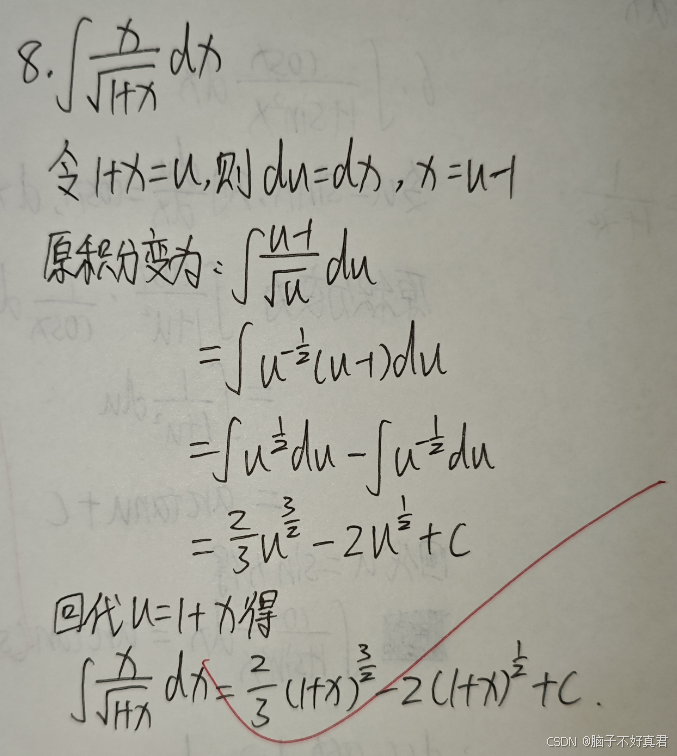 8. ∫ x/√(1+x) dx
令 1+x=u, 则 du=dx, x=u-1
原积分变为: ∫ (u-1)/√u du
= ∫ u^{-1/2}(u-1)du
= ∫ u^{1/2}du - ∫ u^{-1/2}du
= 2/3 u^{3/2} - 2u^{1/2} + C
回代 u=1+x 得
∫ x/√(1+x) dx = 2/3 (1+x)^{3/2} - 2(1+x)^{1/2} + C.
CSDN @脑子不好真君